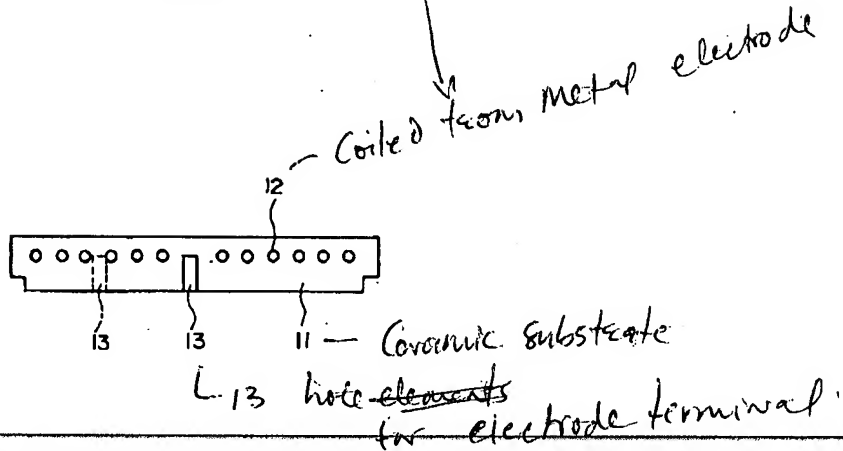 Coiled form, metal electrode
12
13 13 11 — Ceramic substrate
13 hole elements
for electrode terminal.